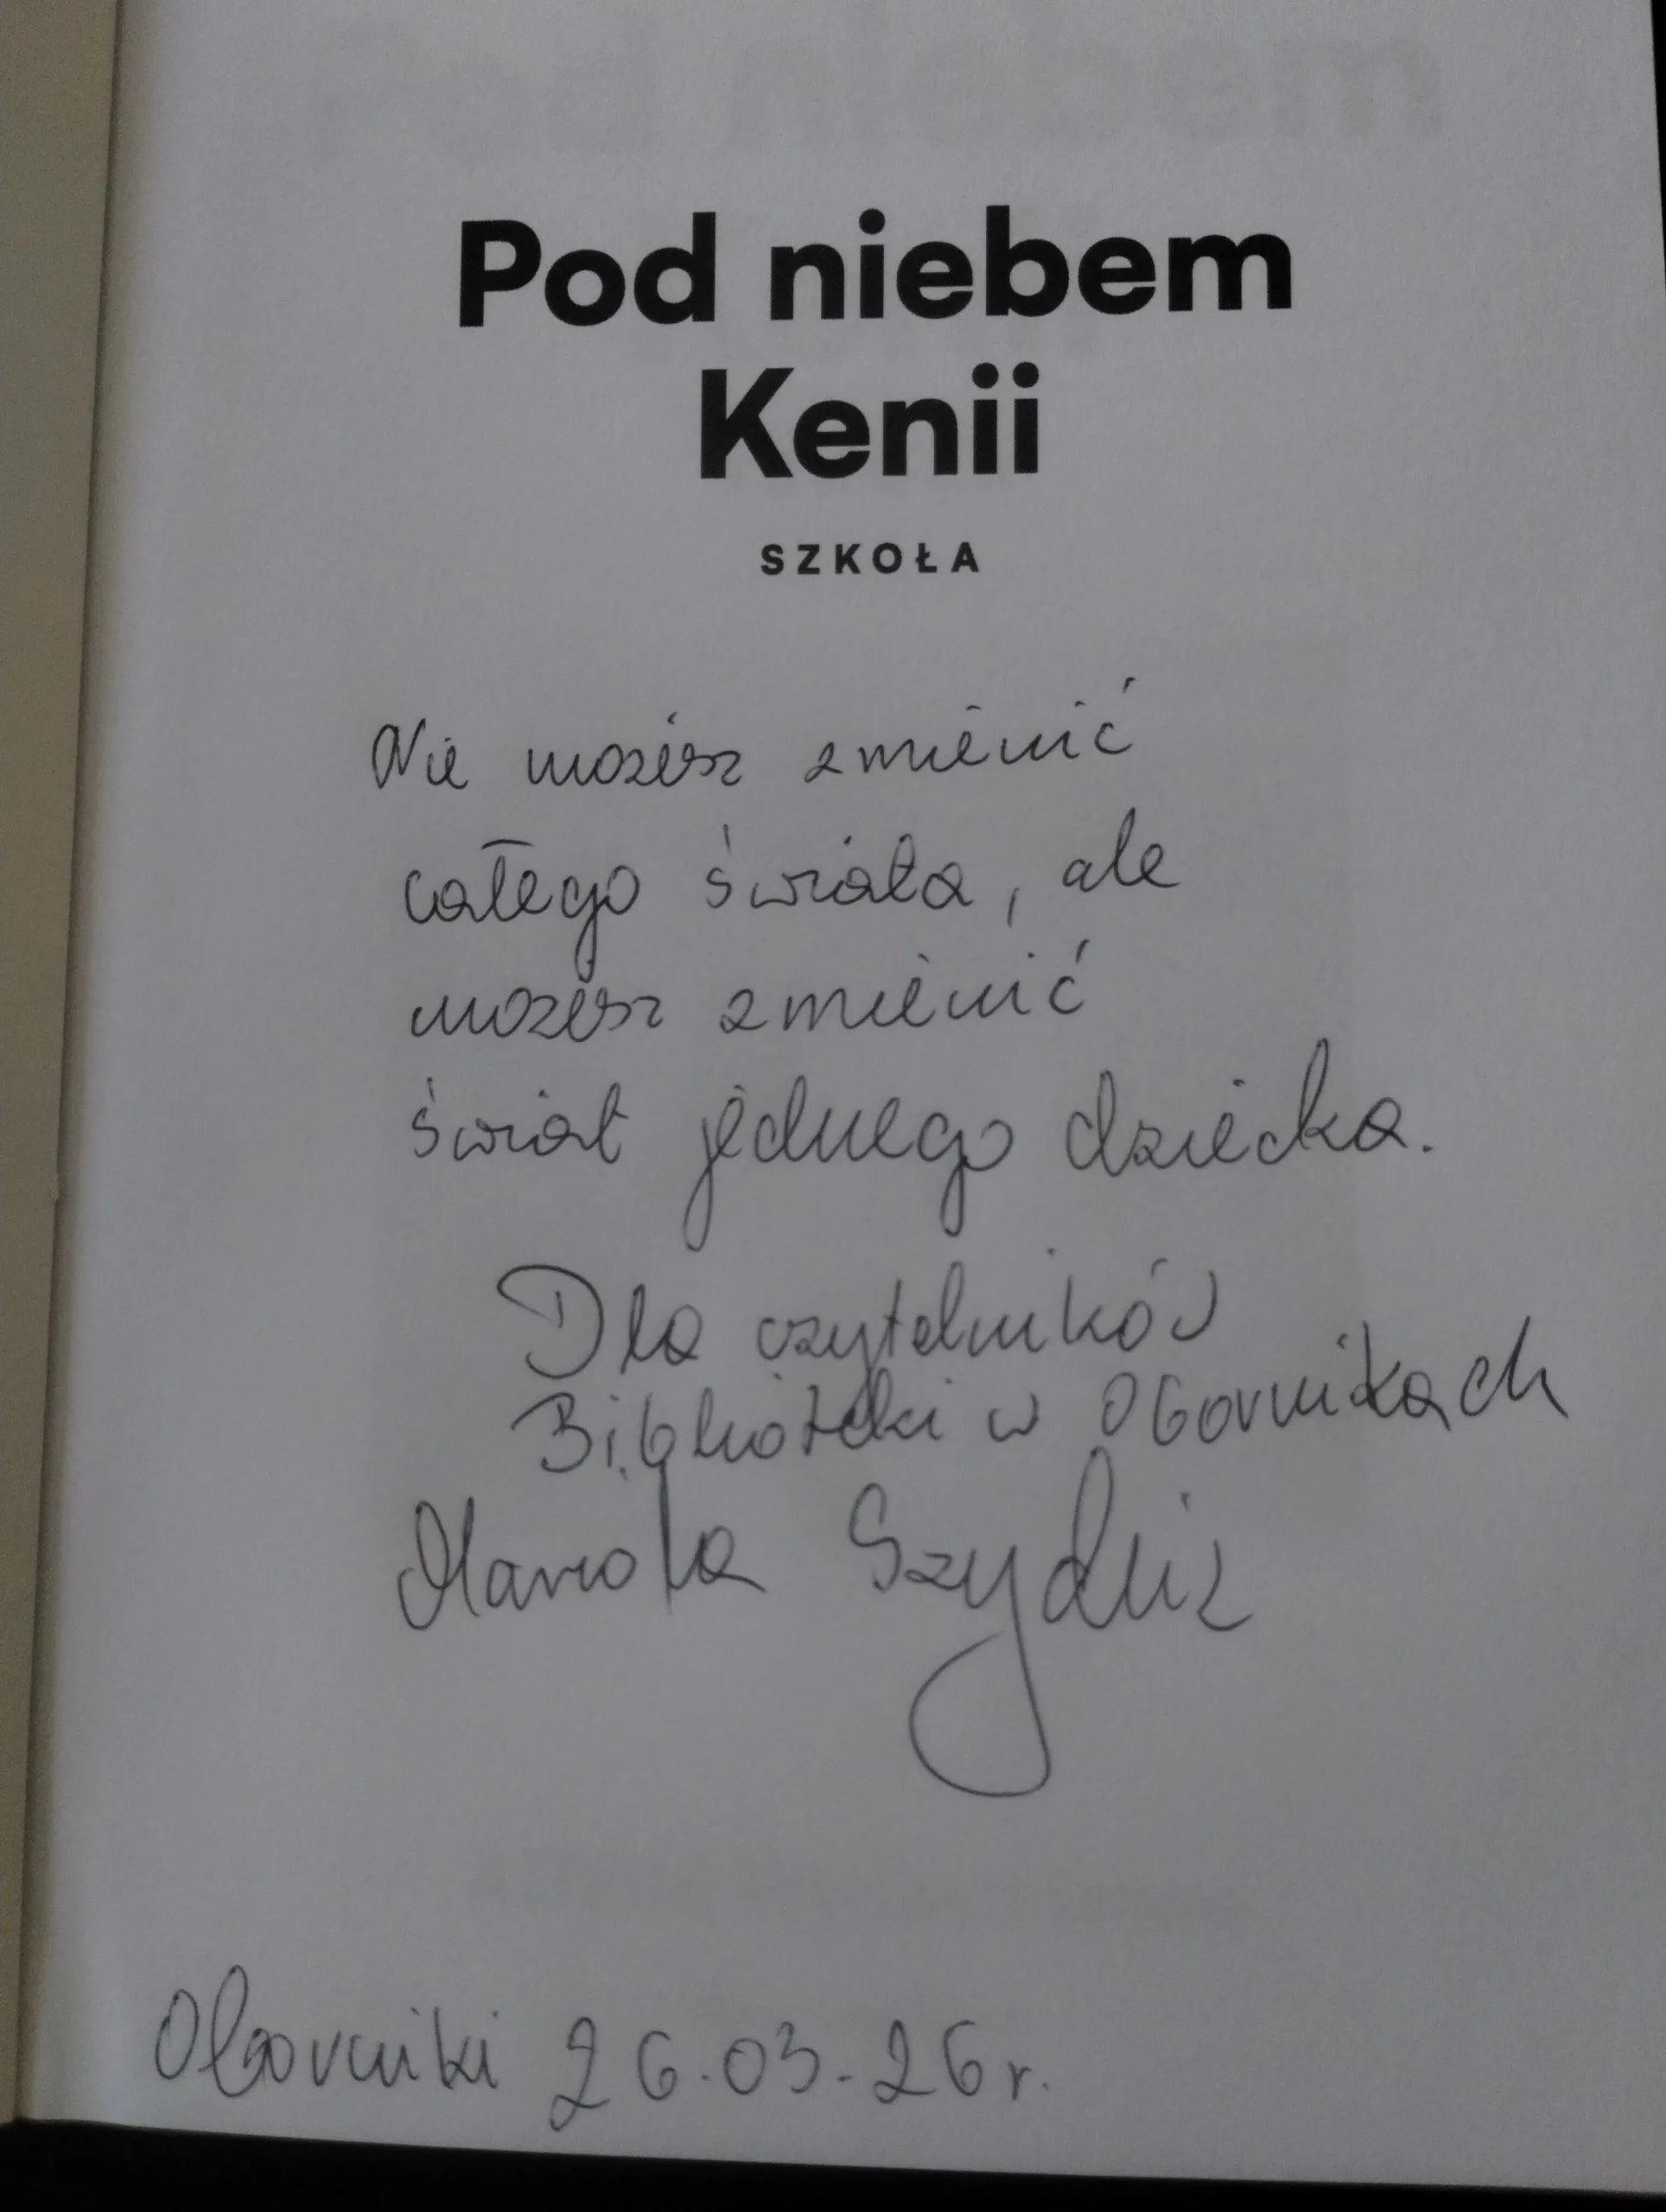 Pod niebem
Kenii
SZKOŁA
Nie możesz zmienić
całego świata, ale
możesz zmienić
świat jednego dziecka.
Dla czytelników
Biblioteki w Obornikach
Mariola Szydlik
Oborniki 26.03.26 r.